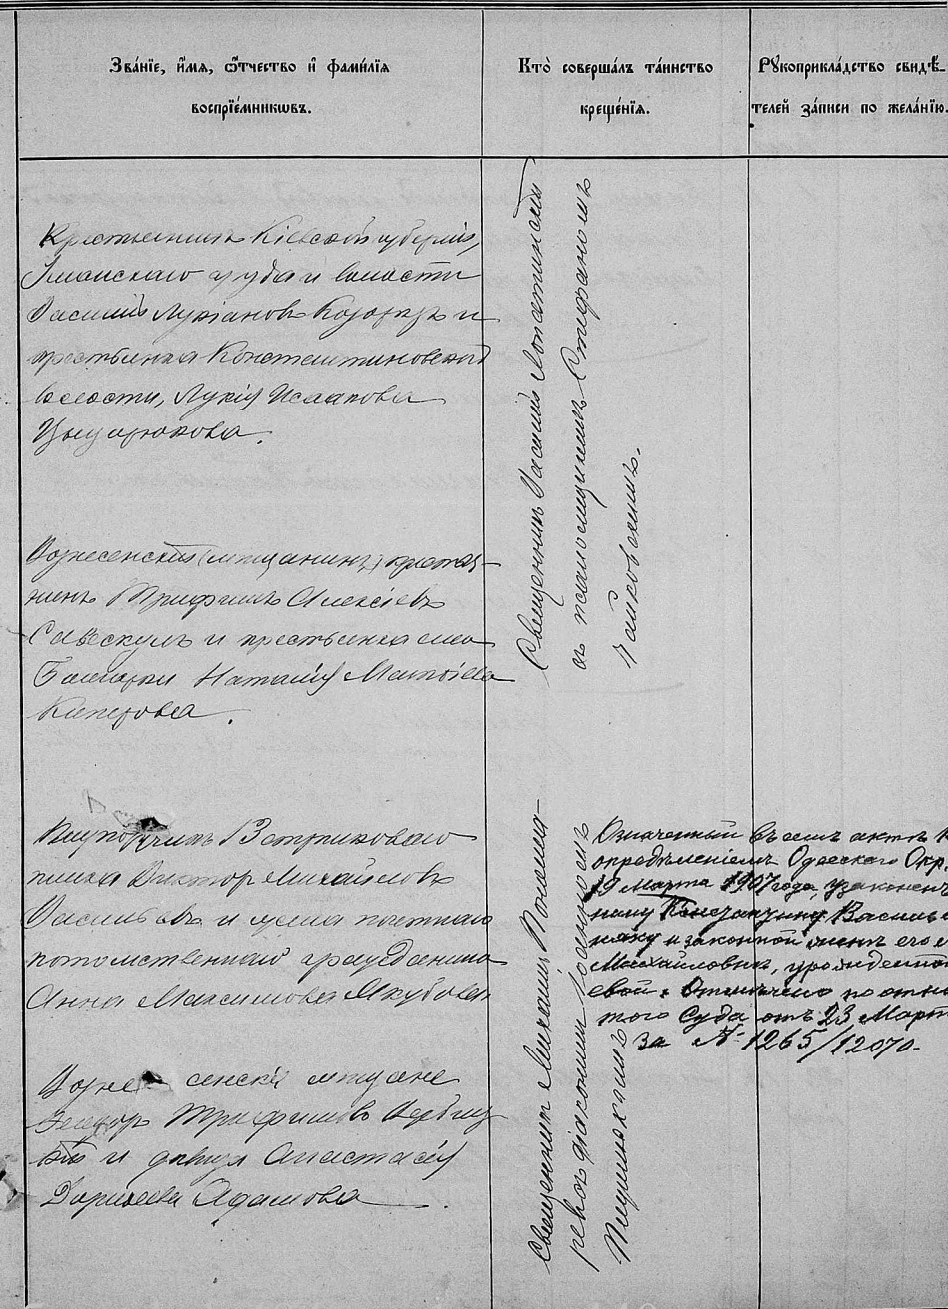 Зва́нїе, и҆́мя, ѻ҆́тчество и҆ фами́лїя
воспрїе́мникѡвъ.
Кто̀ соверша́лъ та́инство
креще́нїя.
Рꙋкоприкла́дство свидѣ́-
телей за́писи по жела́нїю.
Крестьянинъ Кіевской губерніи,
Уманскаго уѣзда и волости
Василій Лукіановъ и
крестьянка Константиновской
волости, Лукія Исаакова
Вознесенскій (мѣщанинъ) крестья-
нинъ Трифилъ Алексіевъ
и крестьянка села
Болгарки Наталія Матѳіева
Киперова.
Священникъ Василій Лопатинскій
съ псаломщикомъ Стефаномъ
Чайковскимъ.
Подпоручикъ Встриковаго
полка Викторъ Михайловъ
Васильевъ и жена почетнаго
потомственнаго гражданина
Анна Максимова Якубова.
Вознесенскіе мѣщане
Ѳеодоръ Трофимовъ
и дѣвица Анастасія
Адамова.
Священникъ Михаилъ Понома-
ревъ съ діакономъ Іоанномъ
Означенный въ семъ актѣ
опредѣленіемъ Одесскаго Окр.
19 Марта 1907 года, узаконенъ
Василь
и законной женѣ его
Михайловнѣ, урожденной
евой. Отмѣчено по отно
того Суда отъ 23 Март
за № 1265/12070.